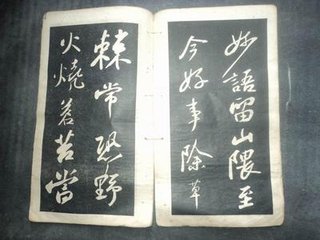 妙語留山隈至
今好事除草
棘常恐野
火燒蒼苔當